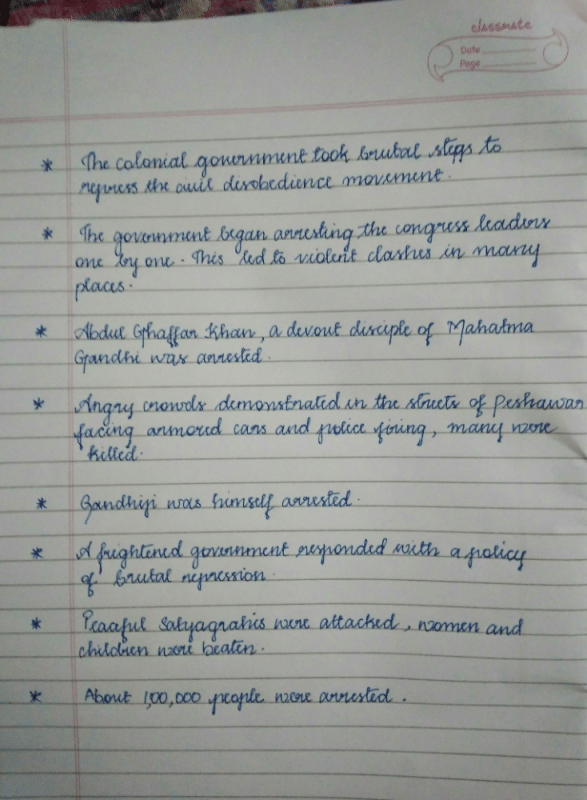 classmate
Date
Page
* The colonial government took brutal steps to
repress the civil disobedience movement.
* The government began arresting the congress leaders
one by one. This led to violent clashes in many
places.
* Abdul Ghaffar Khan, a devout disciple of Mahatma
Gandhi was arrested.
* Angry crowds demonstrated in the streets of Peshawar
facing armored cars and police firing, many were
killed.
* Gandhiji was himself arrested.
* A frightened government responded with a policy
of brutal repression.
* Peaceful Satyagrahis were attached, women and
children were beaten.
* About 1,00,000 people were arrested.